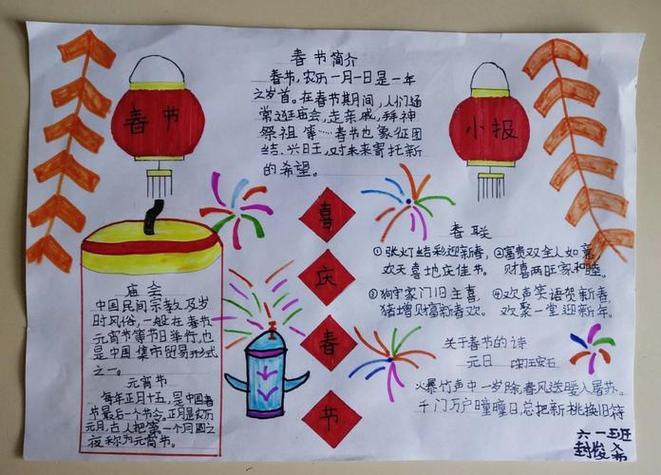 春节
小报
春节简介
春节,农历一月一日是一年
之岁首。在春节期间,人们通
常逛庙会,走亲戚,拜神
祭祖等……春节也象征团
结、兴旺,对未来寄托新
的希望。
喜
庆
春
节
春联
①张灯结彩迎新春,
欢天喜地庆佳节。
②富贵双全人如意
财喜两旺家和睦。
③狗守家门旧主喜,
猪增财富新春欢。
④欢声笑语贺新春
欢聚一堂迎新年。
关于春节的诗
元日 宋王安石
火暴竹声中一岁除,春风送暖入屠苏。
千门万户曈曈日,总把新桃换旧符
庙会
中国民间宗教及岁
时风俗,一般在春节
元宵节等节日举行,也
是中国集市贸易形式
之一。
元宵节
每年正月十五,是中国春
节最后一个节令,正月是农历
元月,古人把第一个月圆之
夜称为元宵节。
六一班